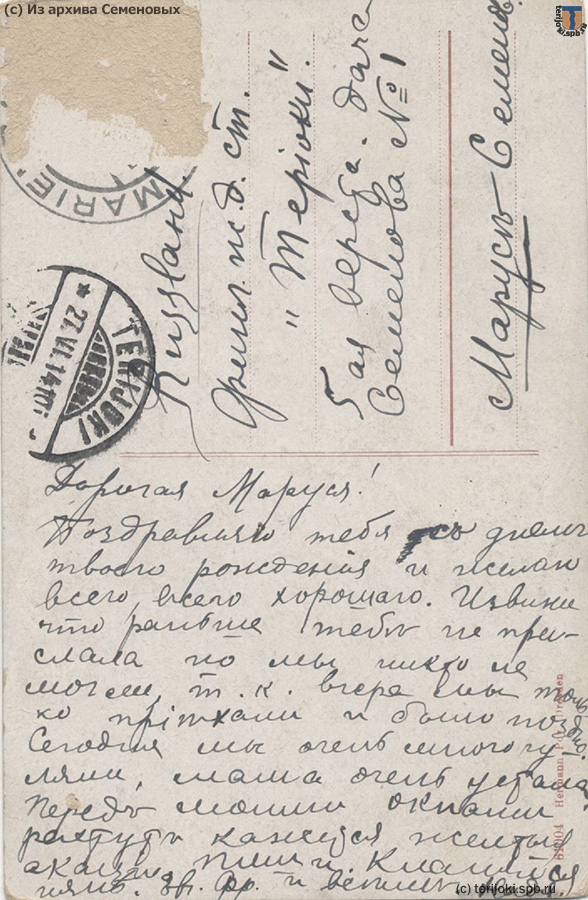 (c) Из архива Семеновых
terijoki.spb.ru
MARIE
TERIJOKI
27.VI.14
Russland.
Финл. ж. д. ст.
"Терiоки."
5ая верста. Дача
Семенова № 1
Марусѣ Семенов
Дорогая Маруся!
Поздравляю тебя съ днемъ
твоего рожденiя и желаю
всего, всего хорошаго. Извини
что раньше тебѣ не при-
слала но мы никто не
могли, т. к. вчера мы толь
ко прiѣхали и было поздно.
Сегодня мы очень много гу-
ляли, мама очень устала
Передъ моими окнами
растутъ кажется желтыя
акацiи. Пиши. Кланяйся
Зв. Фр. и
Hermann P. Dresden
(c) terijoki.spb.ru